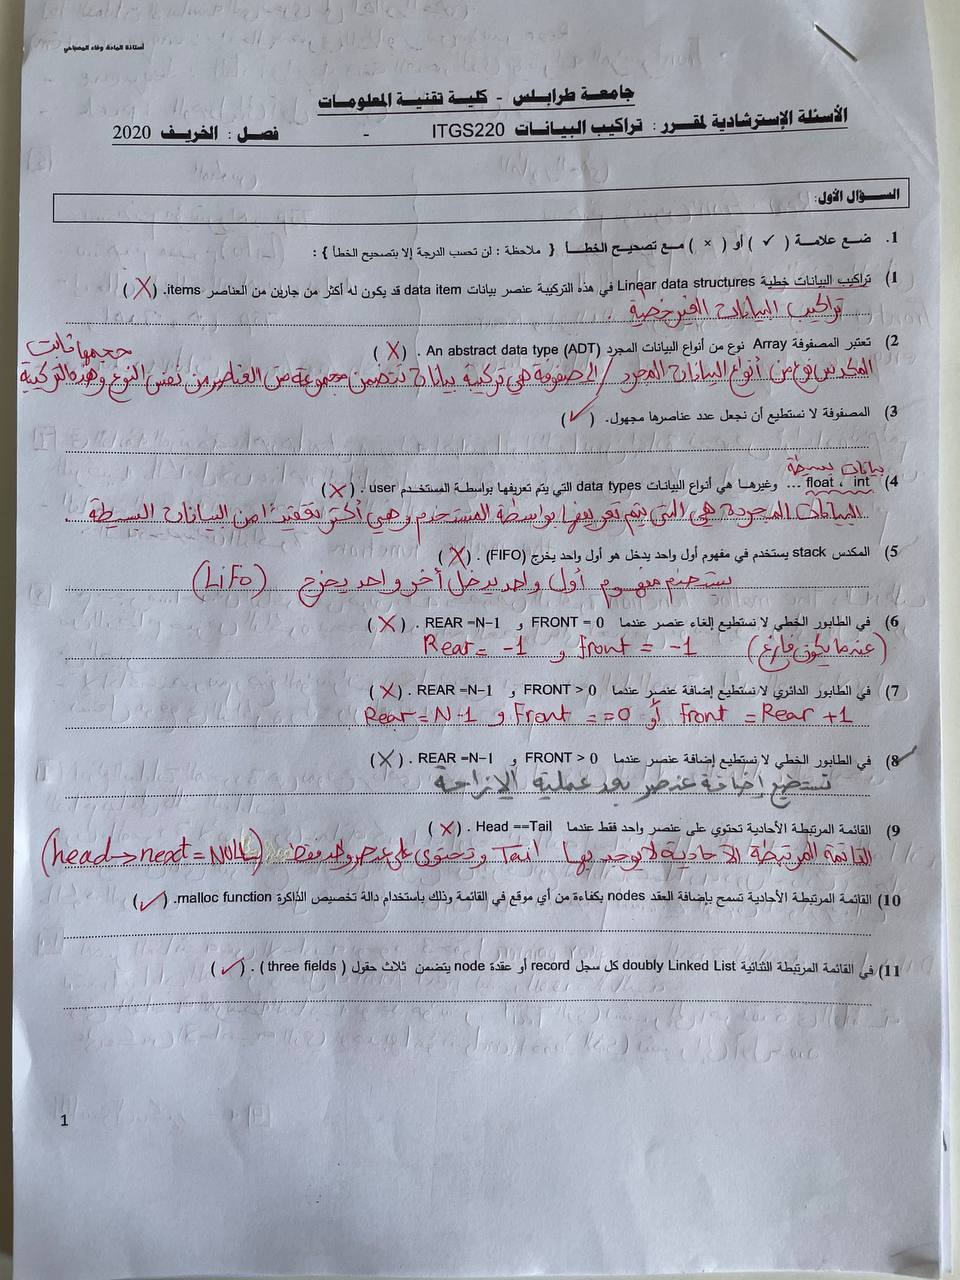 أستاذة المادة: وفاء المصباحي
جامعة طرابلس - كلية تقنية المعلومات
الأسئلة الإسترشادية لمقرر : تراكيب البيانات ITGS220 - فصل : الخريف 2020
السؤال الأول:
1. ضع علامة ( ✓ ) أو ( × ) مع تصحيح الخطأ { ملاحظة : لن تحسب الدرجة إلا بتصحيح الخطأ } :
1) تراكيب البيانات خطية Linear data structures في هذه التركيبة عنصر بيانات data item قد يكون له أكثر من جارين من العناصر items. ( X )
تراكيب البيانات الغير خطية .
2) تعتبر المصفوفة Array نوع من أنواع البيانات المجرد An abstract data type (ADT) . ( X )
حجمها ثابت
المكدس نوع من أنواع البيانات المجرد / المصفوفة هي تركيبة بيانات تتضمن مجموعة من العناصر من نفس النوع وهذه التركيبة
3) المصفوفة لا نستطيع أن نجعل عدد عناصرها مجهول. ( ✓ )
بيانات بسيطة
4) float ، int ... وغيرها هي أنواع البيانات data types التي يتم تعريفها بواسطة المستخدم user . ( X )
البيانات المجردة هي التي يتم تعريفها بواسطة المستخدم وهي أكثر تعقيداً من البيانات البسيطة .
5) المكدس stack يستخدم في مفهوم أول واحد يدخل هو أول واحد يخرج (FIFO) . ( X )
يستخدم مفهوم أول واحد يدخل أخر واحد يخرج (LiFo)
6) في الطابور الخطي لا نستطيع إلغاء عنصر عندما FRONT = 0 و REAR =N-1 . ( X )
(عندما يكون فارغ) front = -1 و Rear = -1
7) في الطابور الدائري لا نستطيع إضافة عنصر عندما FRONT > 0 و REAR =N-1 . ( X )
front = Rear +1 أو Front ==0 و Rear = N-1
8) في الطابور الخطي لا نستطيع إضافة عنصر عندما FRONT > 0 و REAR =N-1 . ( X )
نستطيع إضافة عنصر بعد عملية الإزاحة
9) القائمة المرتبطة الأحادية تحتوي على عنصر واحد فقط عندما Head ==Tail . ( X )
القائمة المرتبطة الأحادية لا يوجد بها Tail وتحتوي على عنصر واحد فقط (head->next = NULL)
10) القائمة المرتبطة الأحادية تسمح بإضافة العقد nodes بكفاءة من أي موقع في القائمة وذلك باستخدام دالة تخصيص الذاكرة malloc function. ( ✓ )
11) في القائمة المرتبطة الثنائية doubly Linked List كل سجل record أو عقدة node يتضمن ثلاث حقول ( three fields ) . ( ✓ )
1